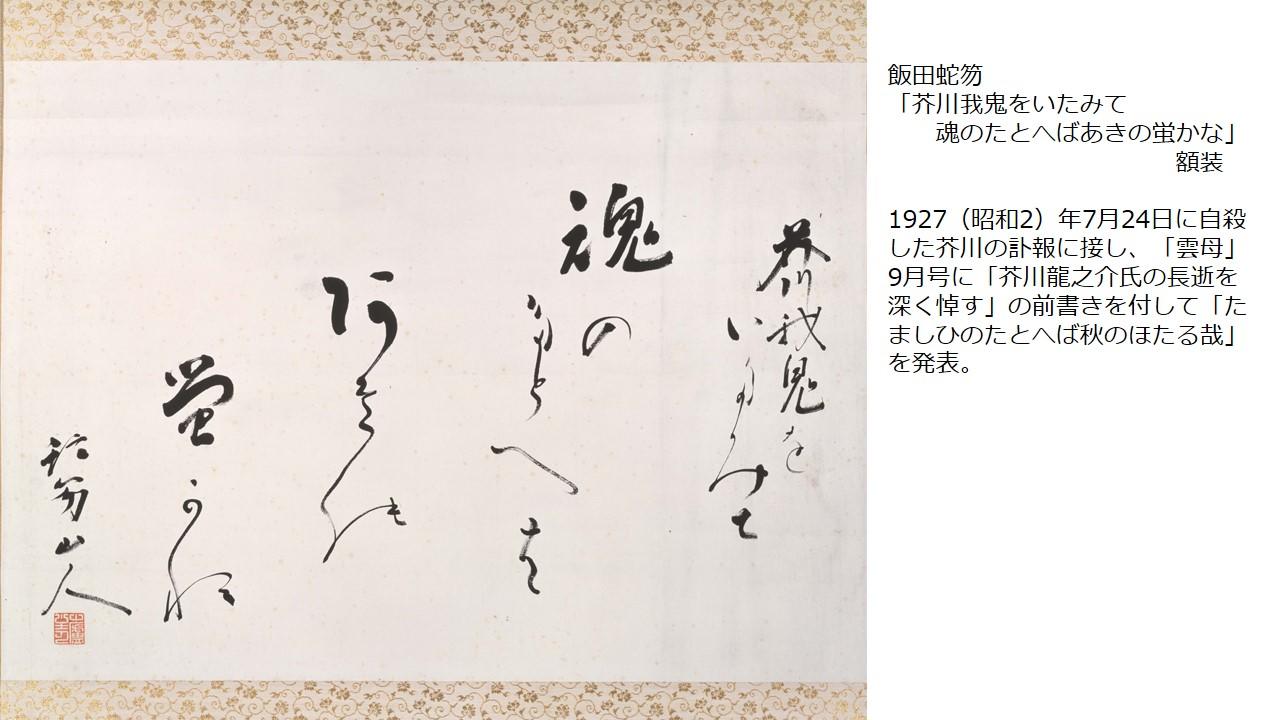 芥川我鬼を
いたみて
魂の
たとへは
阿きの
蛍かな
蛇笏山人
飯田蛇笏
「芥川我鬼をいたみて
魂のたとへばあきの蛍かな」
額装
1927（昭和2）年7月24日に自殺
した芥川の訃報に接し、「雲母」
9月号に「芥川龍之介氏の長逝を
深く悼す」の前書きを付して「た
ましひのたとへば秋のほたる哉」
を発表。